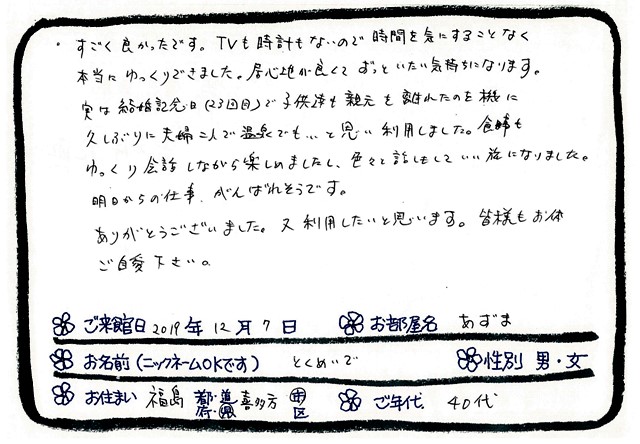 ・すごく良かったです。TVも時計もないので時間を気にすることなく
本当にゆっくりできました。居心地が良くてずっといたい気持ちになります。
実は結婚記念日(23回目)で子供達も親元を離れたのを機に
久しぶりに夫婦二人で温泉でも…と思い利用しました。食事も
ゆっくり会話しながら楽しめましたし、色々と話もしていい旅になりました。
明日からの仕事、がんばれそうです。
ありがとうございました。又利用したいと思います。皆様もお体
ご自愛下さい。
ご来館日 2019年 12月 7日 お部屋名 あずま
お名前(ニックネームOKです) とくめいで 性別 男・女
お住まい 福島 都・道・府・県 喜多方 市 区 ご年代. 40代